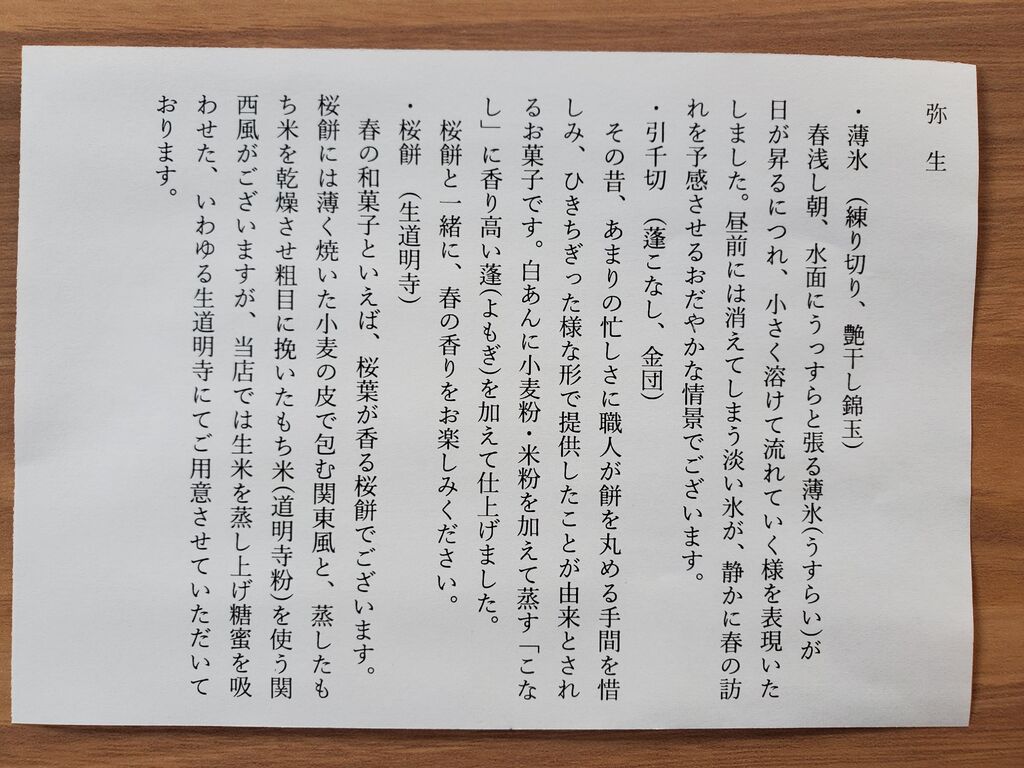 弥生
・薄氷　（練り切り、艶干し錦玉）
春浅し朝、水面にうっすらと張る薄氷(うすらい)が
日が昇るにつれ、小さく溶けて流れていく様を表現いた
しました。昼前には消えてしまう淡い氷が、静かに春の訪
れを予感させるおだやかな情景でございます。
・引千切　（蓬こなし、金団）
その昔、あまりの忙しさに職人が餅を丸める手間を惜
しみ、ひきちぎった様な形で提供したことが由来とされ
るお菓子です。白あんに小麦粉・米粉を加えて蒸す「こな
し」に香り高い蓬(よもぎ)を加えて仕上げました。
桜餅と一緒に、春の香りをお楽しみください。
・桜餅　（生道明寺）
春の和菓子といえば、桜葉が香る桜餅でございます。
桜餅には薄く焼いた小麦の皮で包む関東風と、蒸したも
ち米を乾燥させ粗目に挽いたもち米(道明寺粉)を使う関
西風がございますが、当店では生米を蒸し上げ糖蜜を吸
わせた、いわゆる生道明寺にてご用意させていただいて
おります。